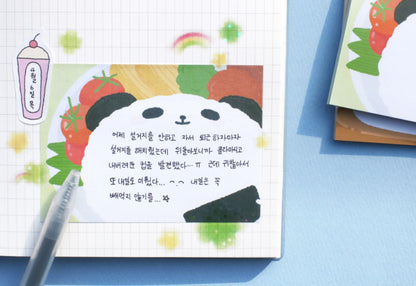 4월 6일 목
어제 설거지를 안하고 자서 퇴근하자마자
설거지를 해치웠는데 뒤돌아보니까 물마시고
내버려둔 컵을 발견했다... ㅠ 근데 귀찮아서
또 내일로 미뤘다... ^.^ 내일은 꼭
빼먹지 않기를...☆